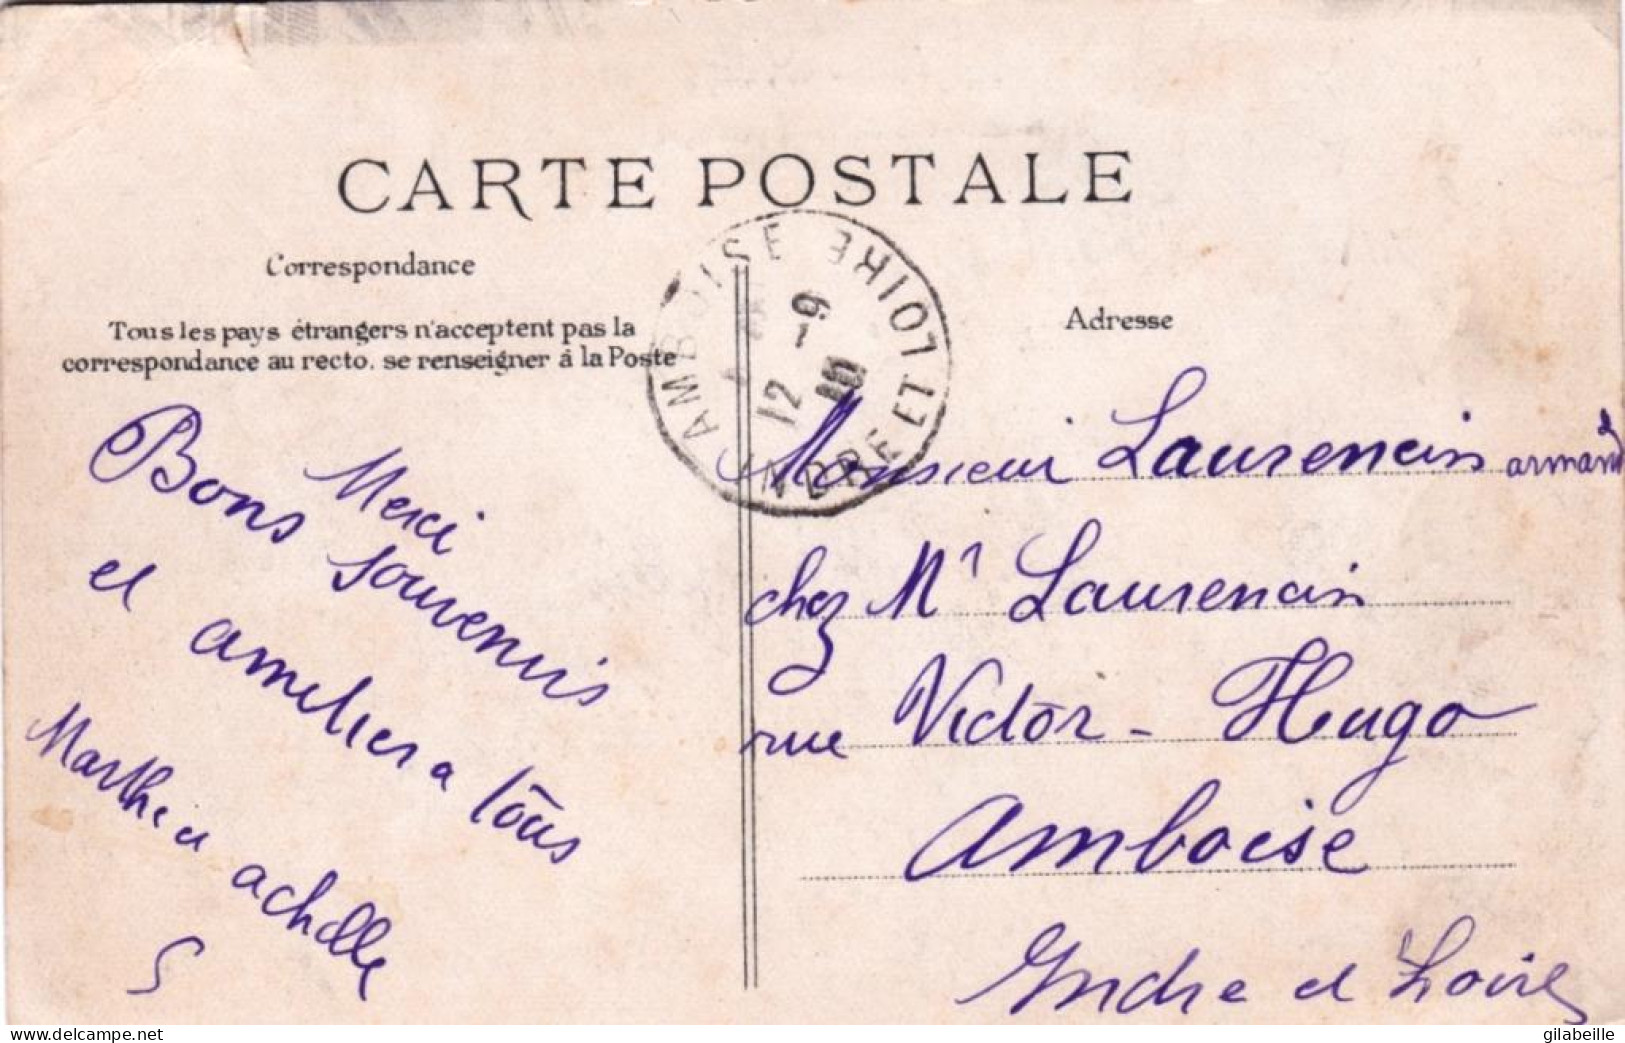 CARTE POSTALE
Correspondance
Tous les pays étrangers n'acceptent pas la
correspondance au recto, se renseigner à la Poste
Merci
Bons souvenirs
et amelies a tous
Marthe et achille
AMBOISE
INDRE ET LOIRE
12 - 9
10
Adresse
Monsieur Laurencin armand
chez Mr Laurencin
rue Victor - Hugo
Amboise
Indre et Loire
www.delcampe.net
gilabeille